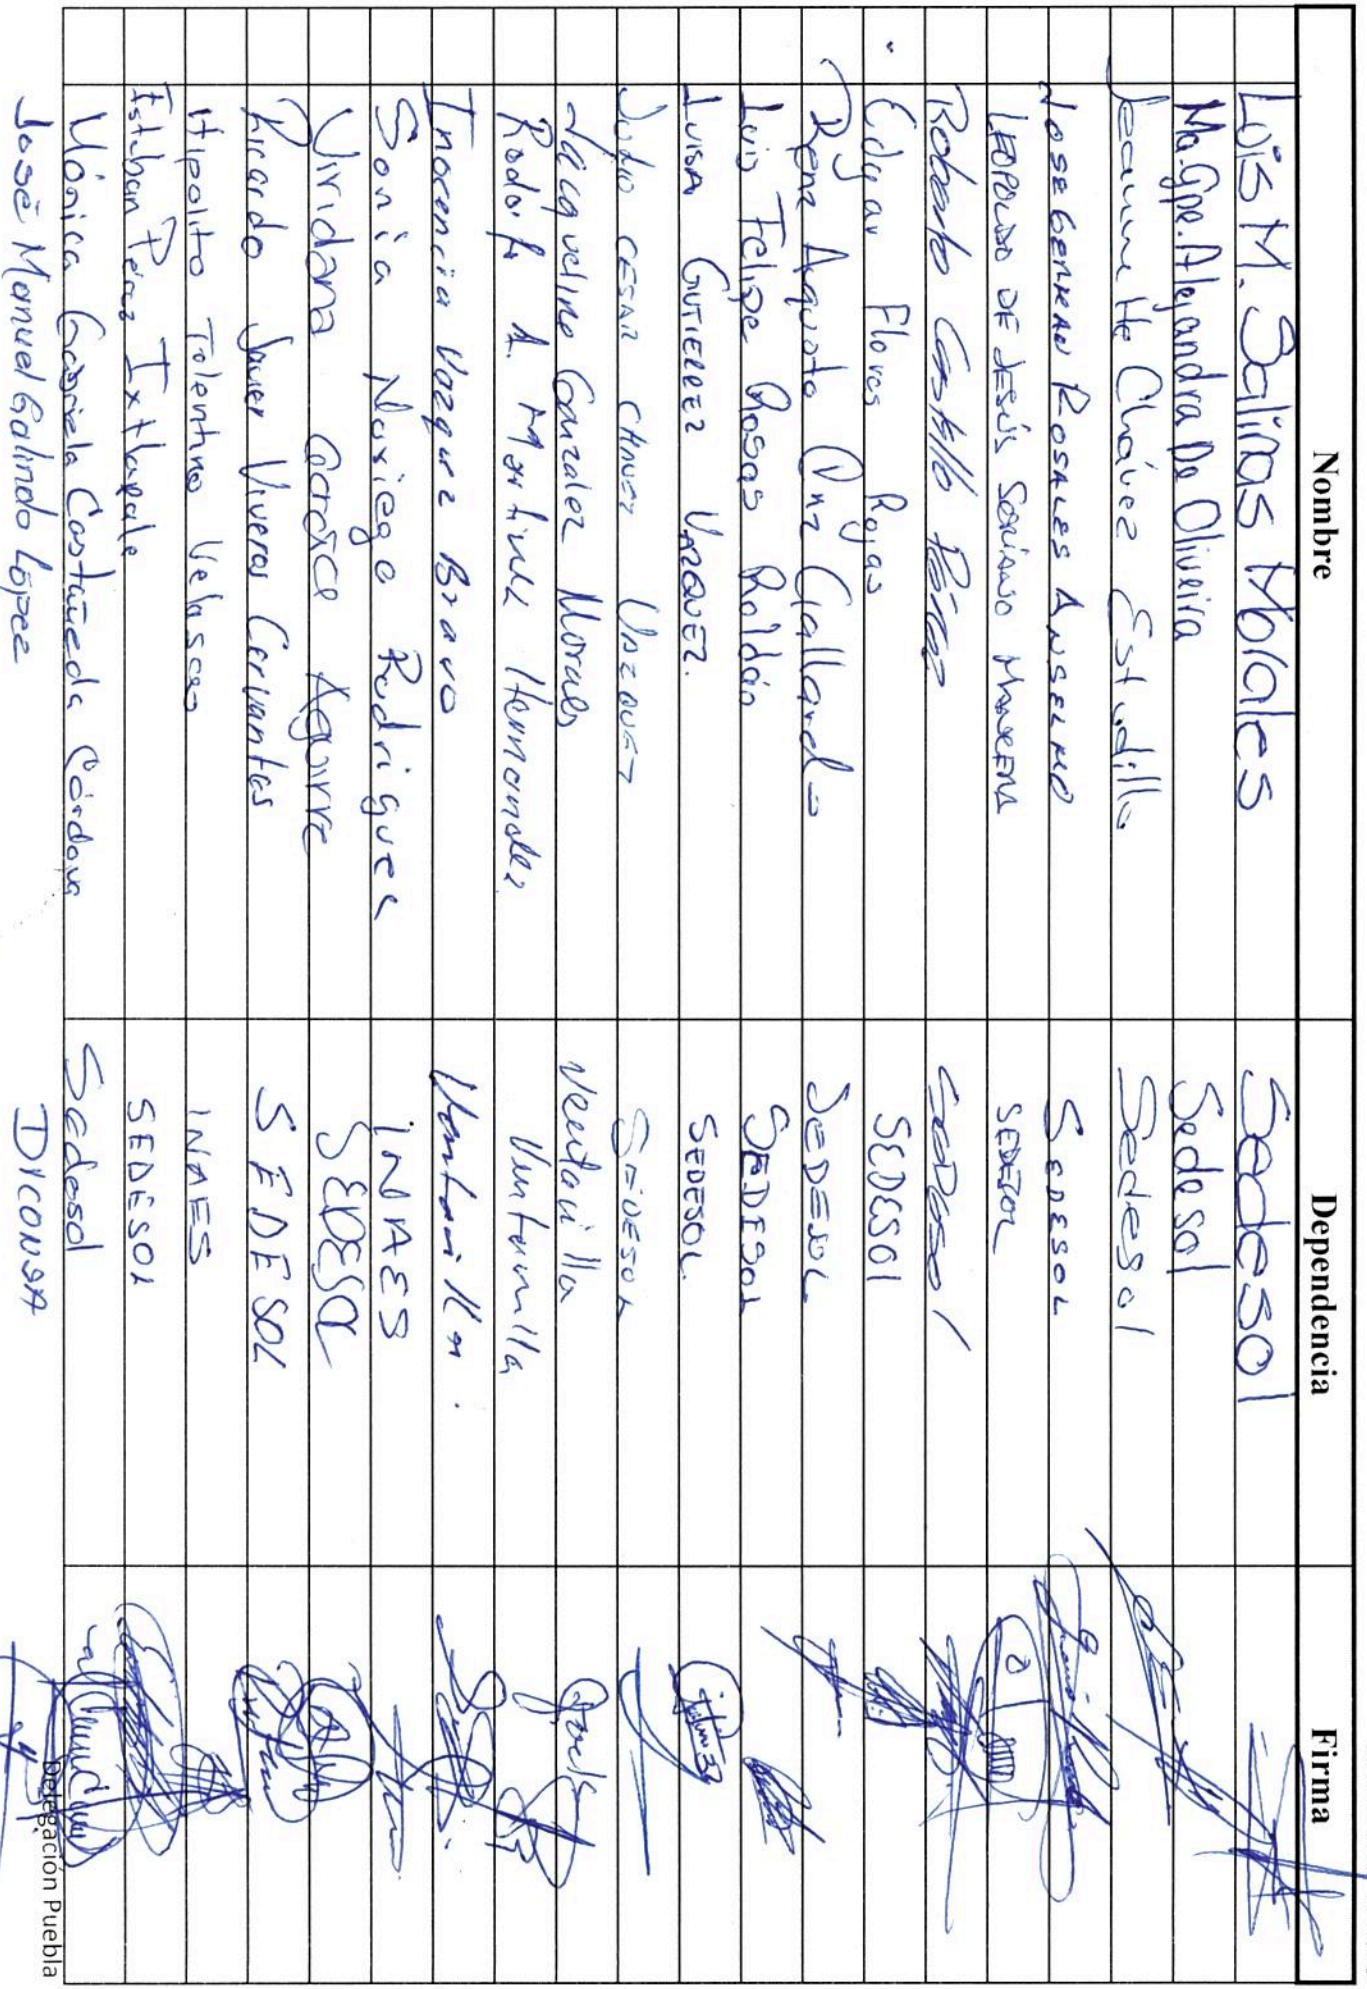 Nombre Dependencia Firma
Luis M. Salinas Morales Sedesol
Ma. Gpe. Alejandra De Oliveira Sedesol
Jeannette Chávez Estudillo Sedesol
JOSE GERMAN ROSALES ANSELMO SEDESOL
LEOPOLDO DE JESÚS SORIANO SEDESOL
Roberto Castillo Pérez Sedesol
Edgar Flores Rojas SEDESOl
Rene Augusto Gallardo SEDESOL
Luis Felipe Rosas Roldán SEDESOL
LUISA GUTIERREZ VAZQUEZ. SEDESOL
Julio CESAR CHAVEZ VAZQUEZ SEDESOL
Jacqueline González Morales Ventanilla
Rodolfo A. Martinez Hernandez Ventanilla
Inocencia Vazquez Bravo Ventanilla
Sonia Noriega Rodriguez INAES
Viridiana García Aguirre SEDESOL
Ricardo Javier Viveros Cervantes SEDESOL
Hipolito Tolentino Velasco INAES
Esteban Pérez Ixtlapale SEDESOL
Mónica Gabriela Castañeda Córdova Sedesol
José Manuel Galindo López DICONSA
Delegación Puebla